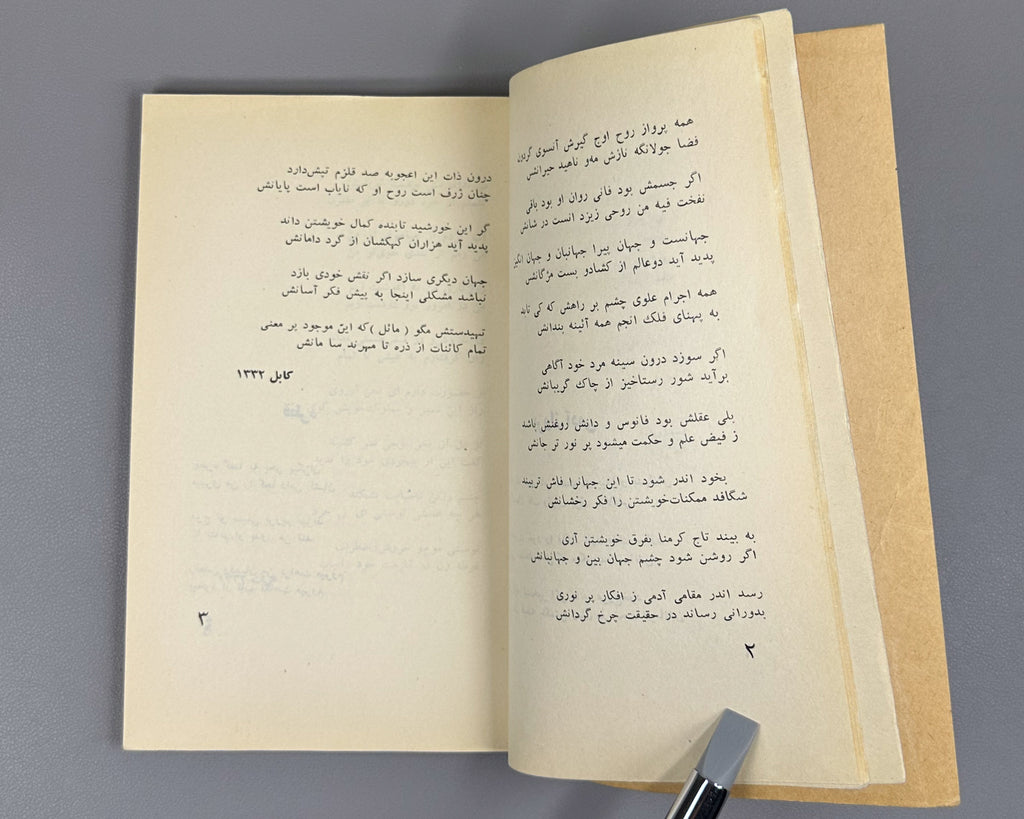 همه پرواز روح اوج گیرش آنسوی گردون
فضا جولانگه نازش مه‌و ناهید حیرانش
اگر جسمش بود فانی روان او بود باقی
نفخت فیه من روحی زیزد انست در شانش
جهانست و جهان پیرا جهانبان و جهان انگیز
پدید آید دوعالم از کشادو بست مژگانش
همه اجرام علوی چشم بر راهش که کی تابد
به پهنای فلك انجم همه آئینه بندانش
اگر سوزد درون سینه مرد خود آگاهی
برآید شور رستاخیز از چاك گریبانش
بلی عقلش بود فانوس و دانش روغنش باشد
ز فیض علم و حکمت میشود پر نور تر جانش
بخود اندر شود تا این جهانرا فاش تربیند
شگافد ممکنات‌خویشتن را فکر رخشانش
به بیند تاج کرمنا بفرق خویشتن آری
اگر روشن شود چشم جهان بین و جهانبانش
رسد اندر مقامی آدمی ز افکار پر نوری
بدورانی رساند در حقیقت چرخ گردانش
۲
درون ذات این اعجوبه صد قلزم تپش‌دارد
چنان ژرف است روح او که نایاب است پایانش
گر این خورشید تابنده کمال خویشتن داند
پدید آید هزاران کهکشان از گرد دامانش
جهان دیگری سازد اگر نقش خودی بازد
نباشد مشکلی اینجا به پیش فکر آسانش
تهیدستش مگو ( مائل )که این موجود پر معنی
تمام کائنات از ذره تا مهرند سا مانش
کابل ۱۳۳۲
۳